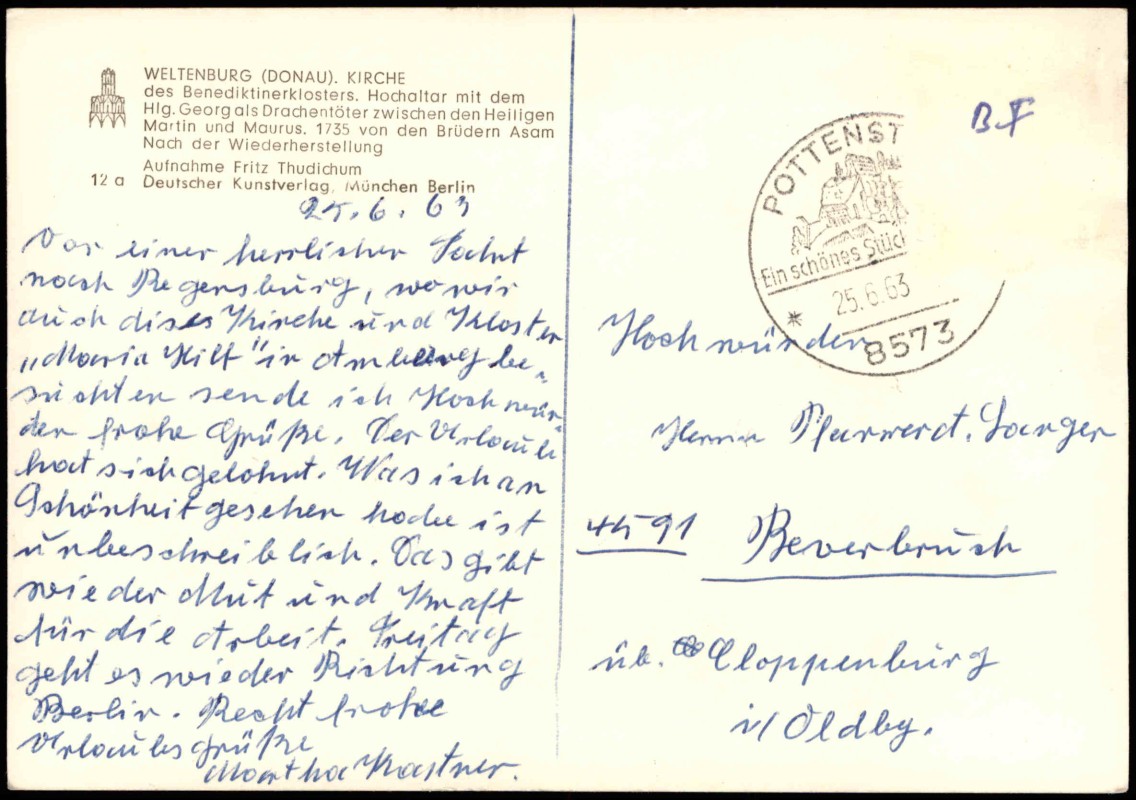 WELTENBURG (DONAU). KIRCHE
des Benediktinerklosters. Hochaltar mit dem
Hlg. Georg als Drachentöter zwischen den Heiligen
Martin und Maurus. 1735 von den Brüdern Asam
Nach der Wiederherstellung
Aufnahme Fritz Thudichum
12 a Deutscher Kunstverlag, München Berlin
25.6.63
Von einer herrlichen Fahrt
nach Regensburg, wo wir
auch dises Kirche und Kloster
„Maria Hilf" in Amberg be-
suchten sende ich Hochwür-
den frohe Grüße. Der Urlaub
hat sich gelohnt. Was ich an
Schönheit gesehen habe ist
unbeschreiblich. Das gibt
wieder Mut und Kraft
für die Arbeit. Freitag
geht es wieder Richtung
Berlin. Recht frohe
Urlaubsgrüße
Martha Kastner.
B.F
POTTENST
Ein schönes Stück
25.6.63
8573
Hochwürden
Herrn Pfarrer
4591 Beverbruch
üb. Cloppenburg
i/Oldbg.